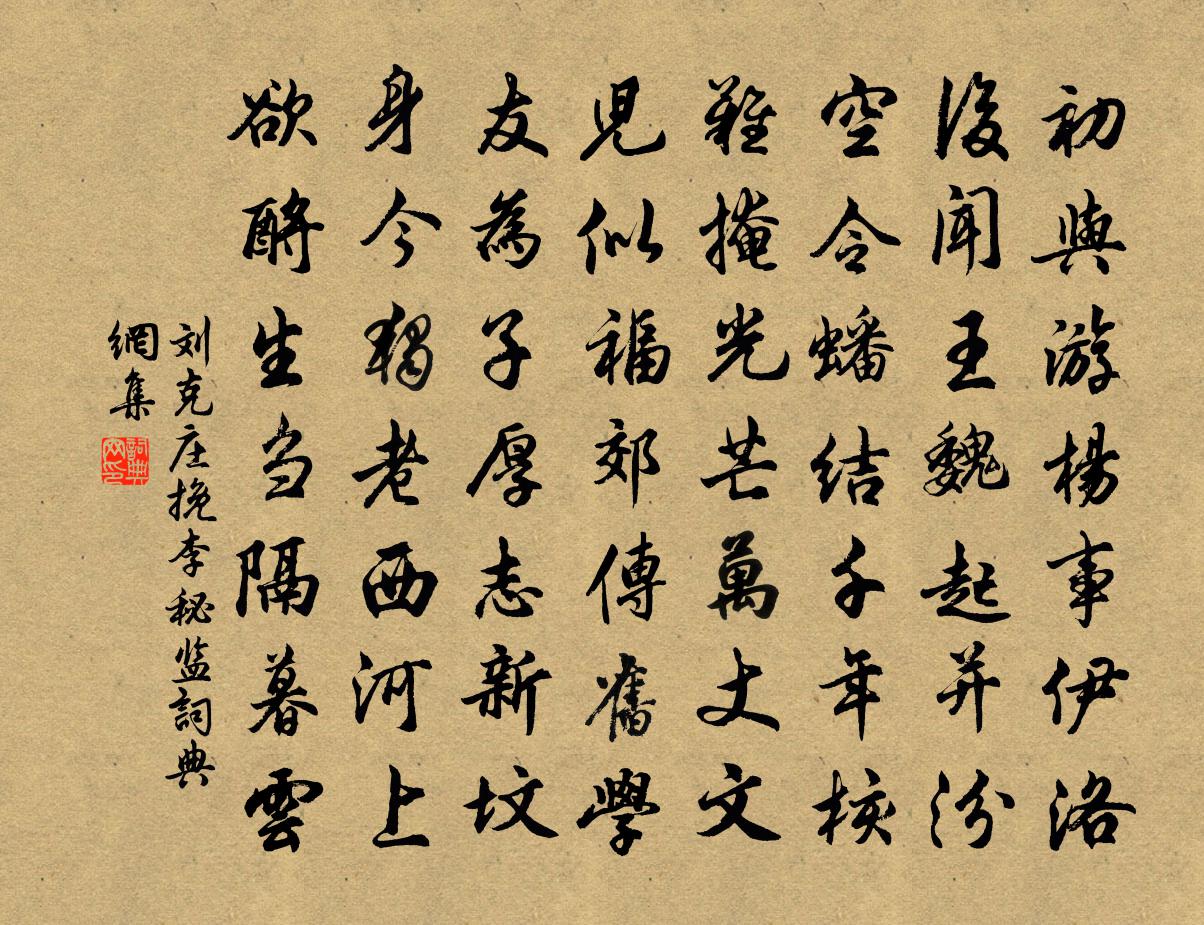 初與游楊事伊洛
後闻王魏起并汾
空令蟠结千年核
難掩光芒萬丈文
児似福郊傳舊學
友為子厚志新坟
身今獨老西河上
欲酹生刍隔暮雲
刘克庄挽李秘监詞典
網集
詞典
网印